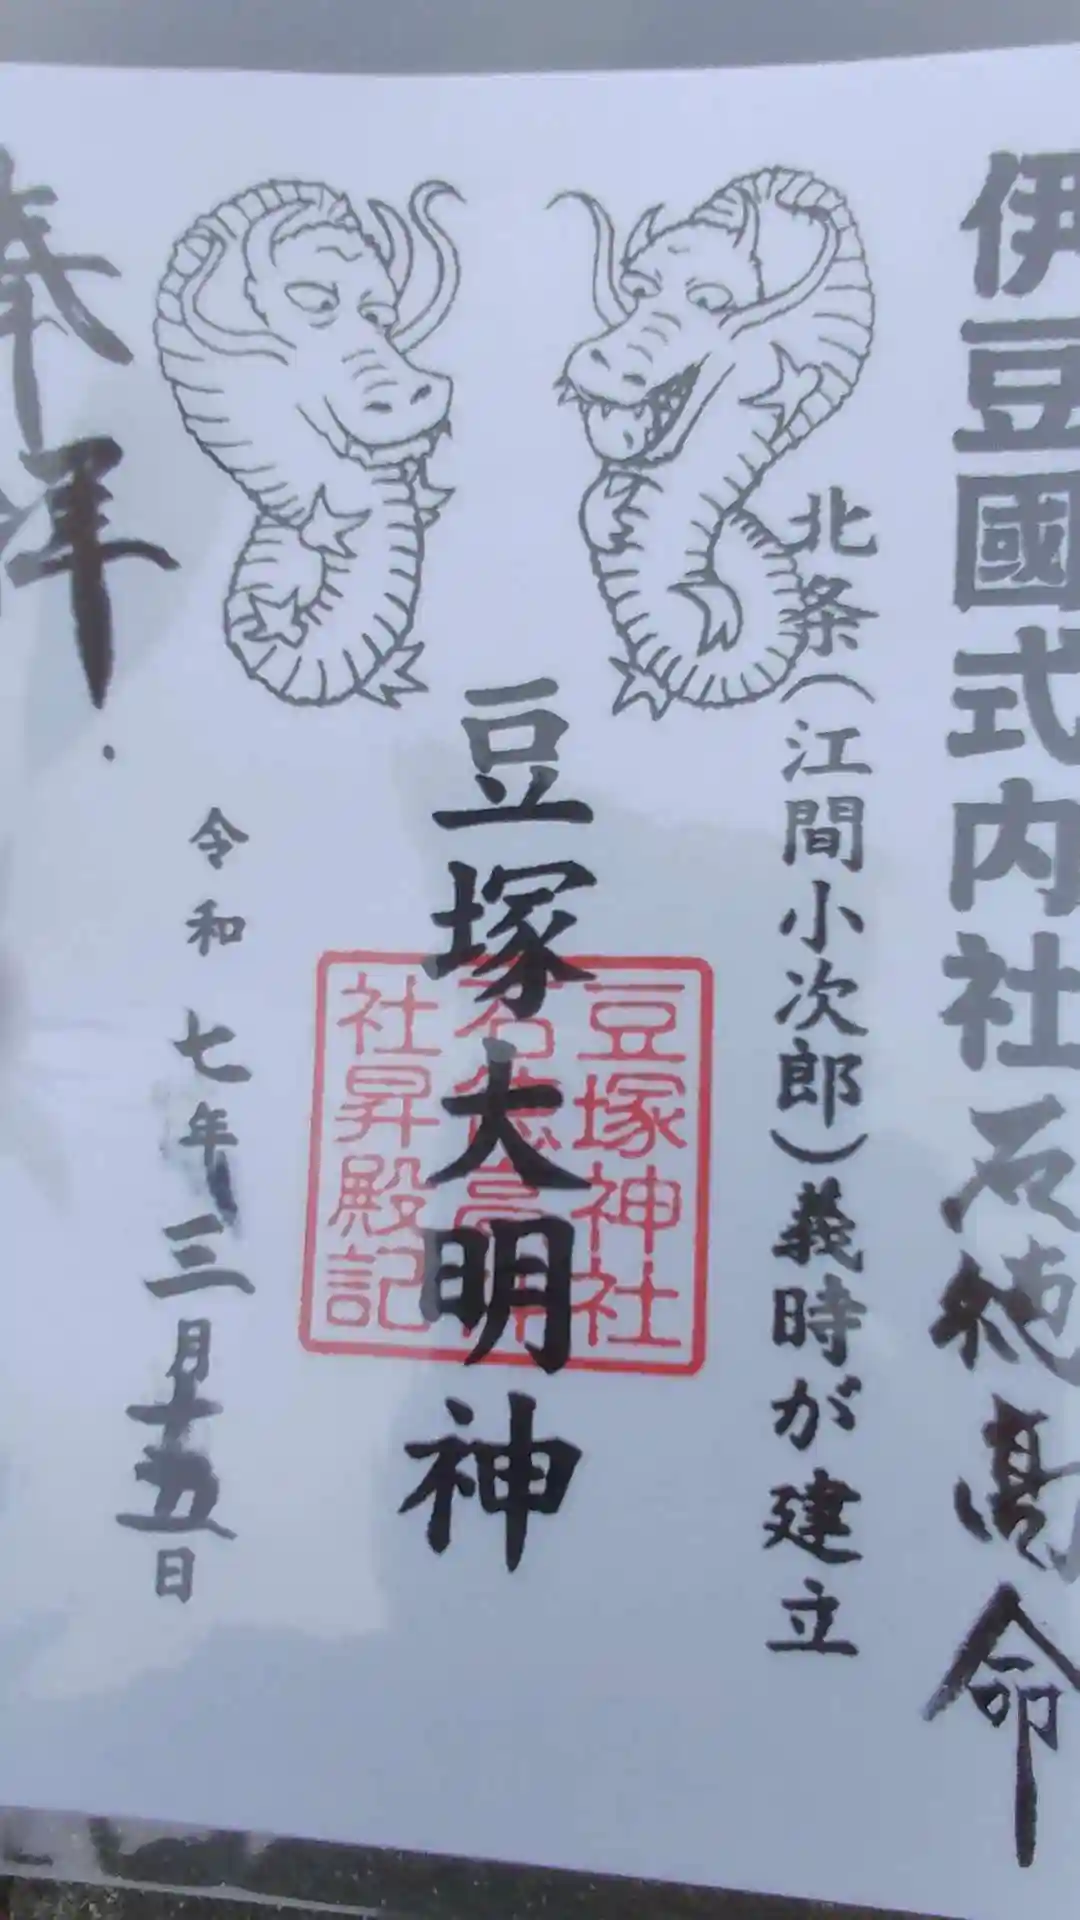 伊豆國式内社石徳髙命
北条(江間小次郎)義時が建立
豆塚大明神
豆塚神社
石徳高神
社昇殿記
令和七年三月十五日
奉拝